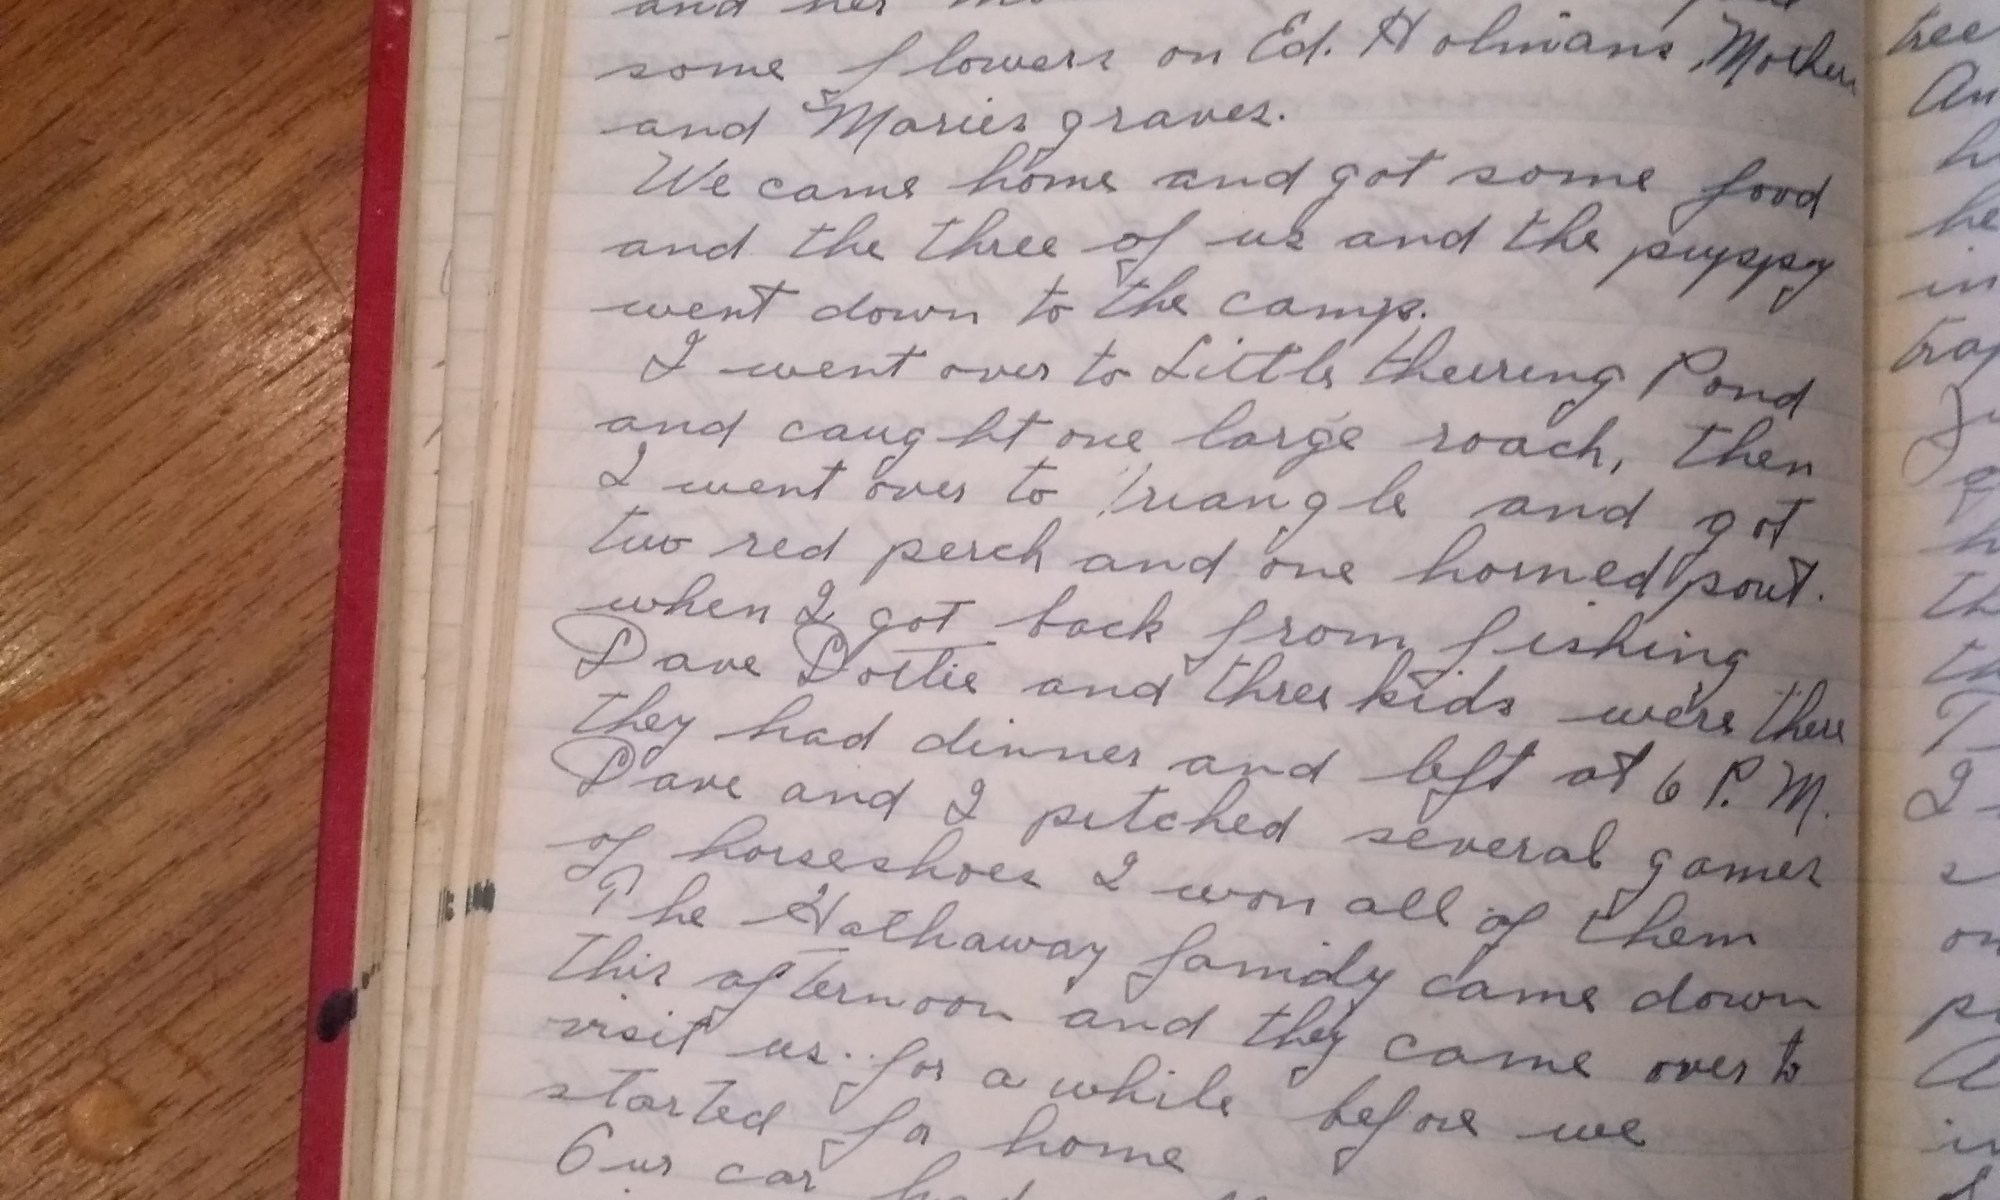 and her
some flowers on Ed. Holmans, Mother
and Maries graves.
We came home and got some food
and the three of us and the puppy
went down to the camp.
I went over to Little Pond
and caught one large roach, then
I went over to Triangle and got
two red perch and one horned pout.
when I got back from fishing
Dave Dottie and three kids were there
they had dinner and left at 6 P.M.
Dave and I pitched several games
of horseshoes I won all of them
The Hathaway family came down
this afternoon and they came over to
visit us. for a while before we
started for home
Our car had
tree